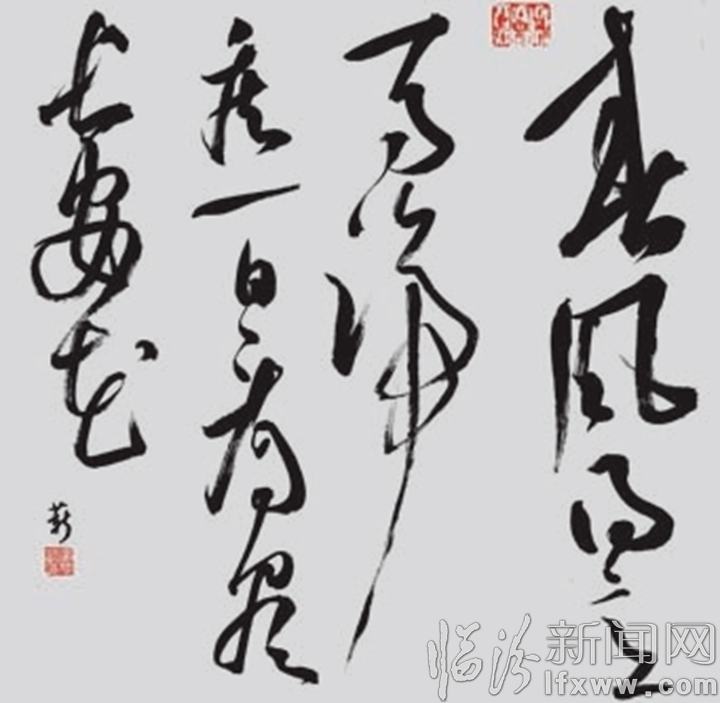 春风得意
马蹄
疾一日看尽
长安花
临汾新闻网
lfxww.com